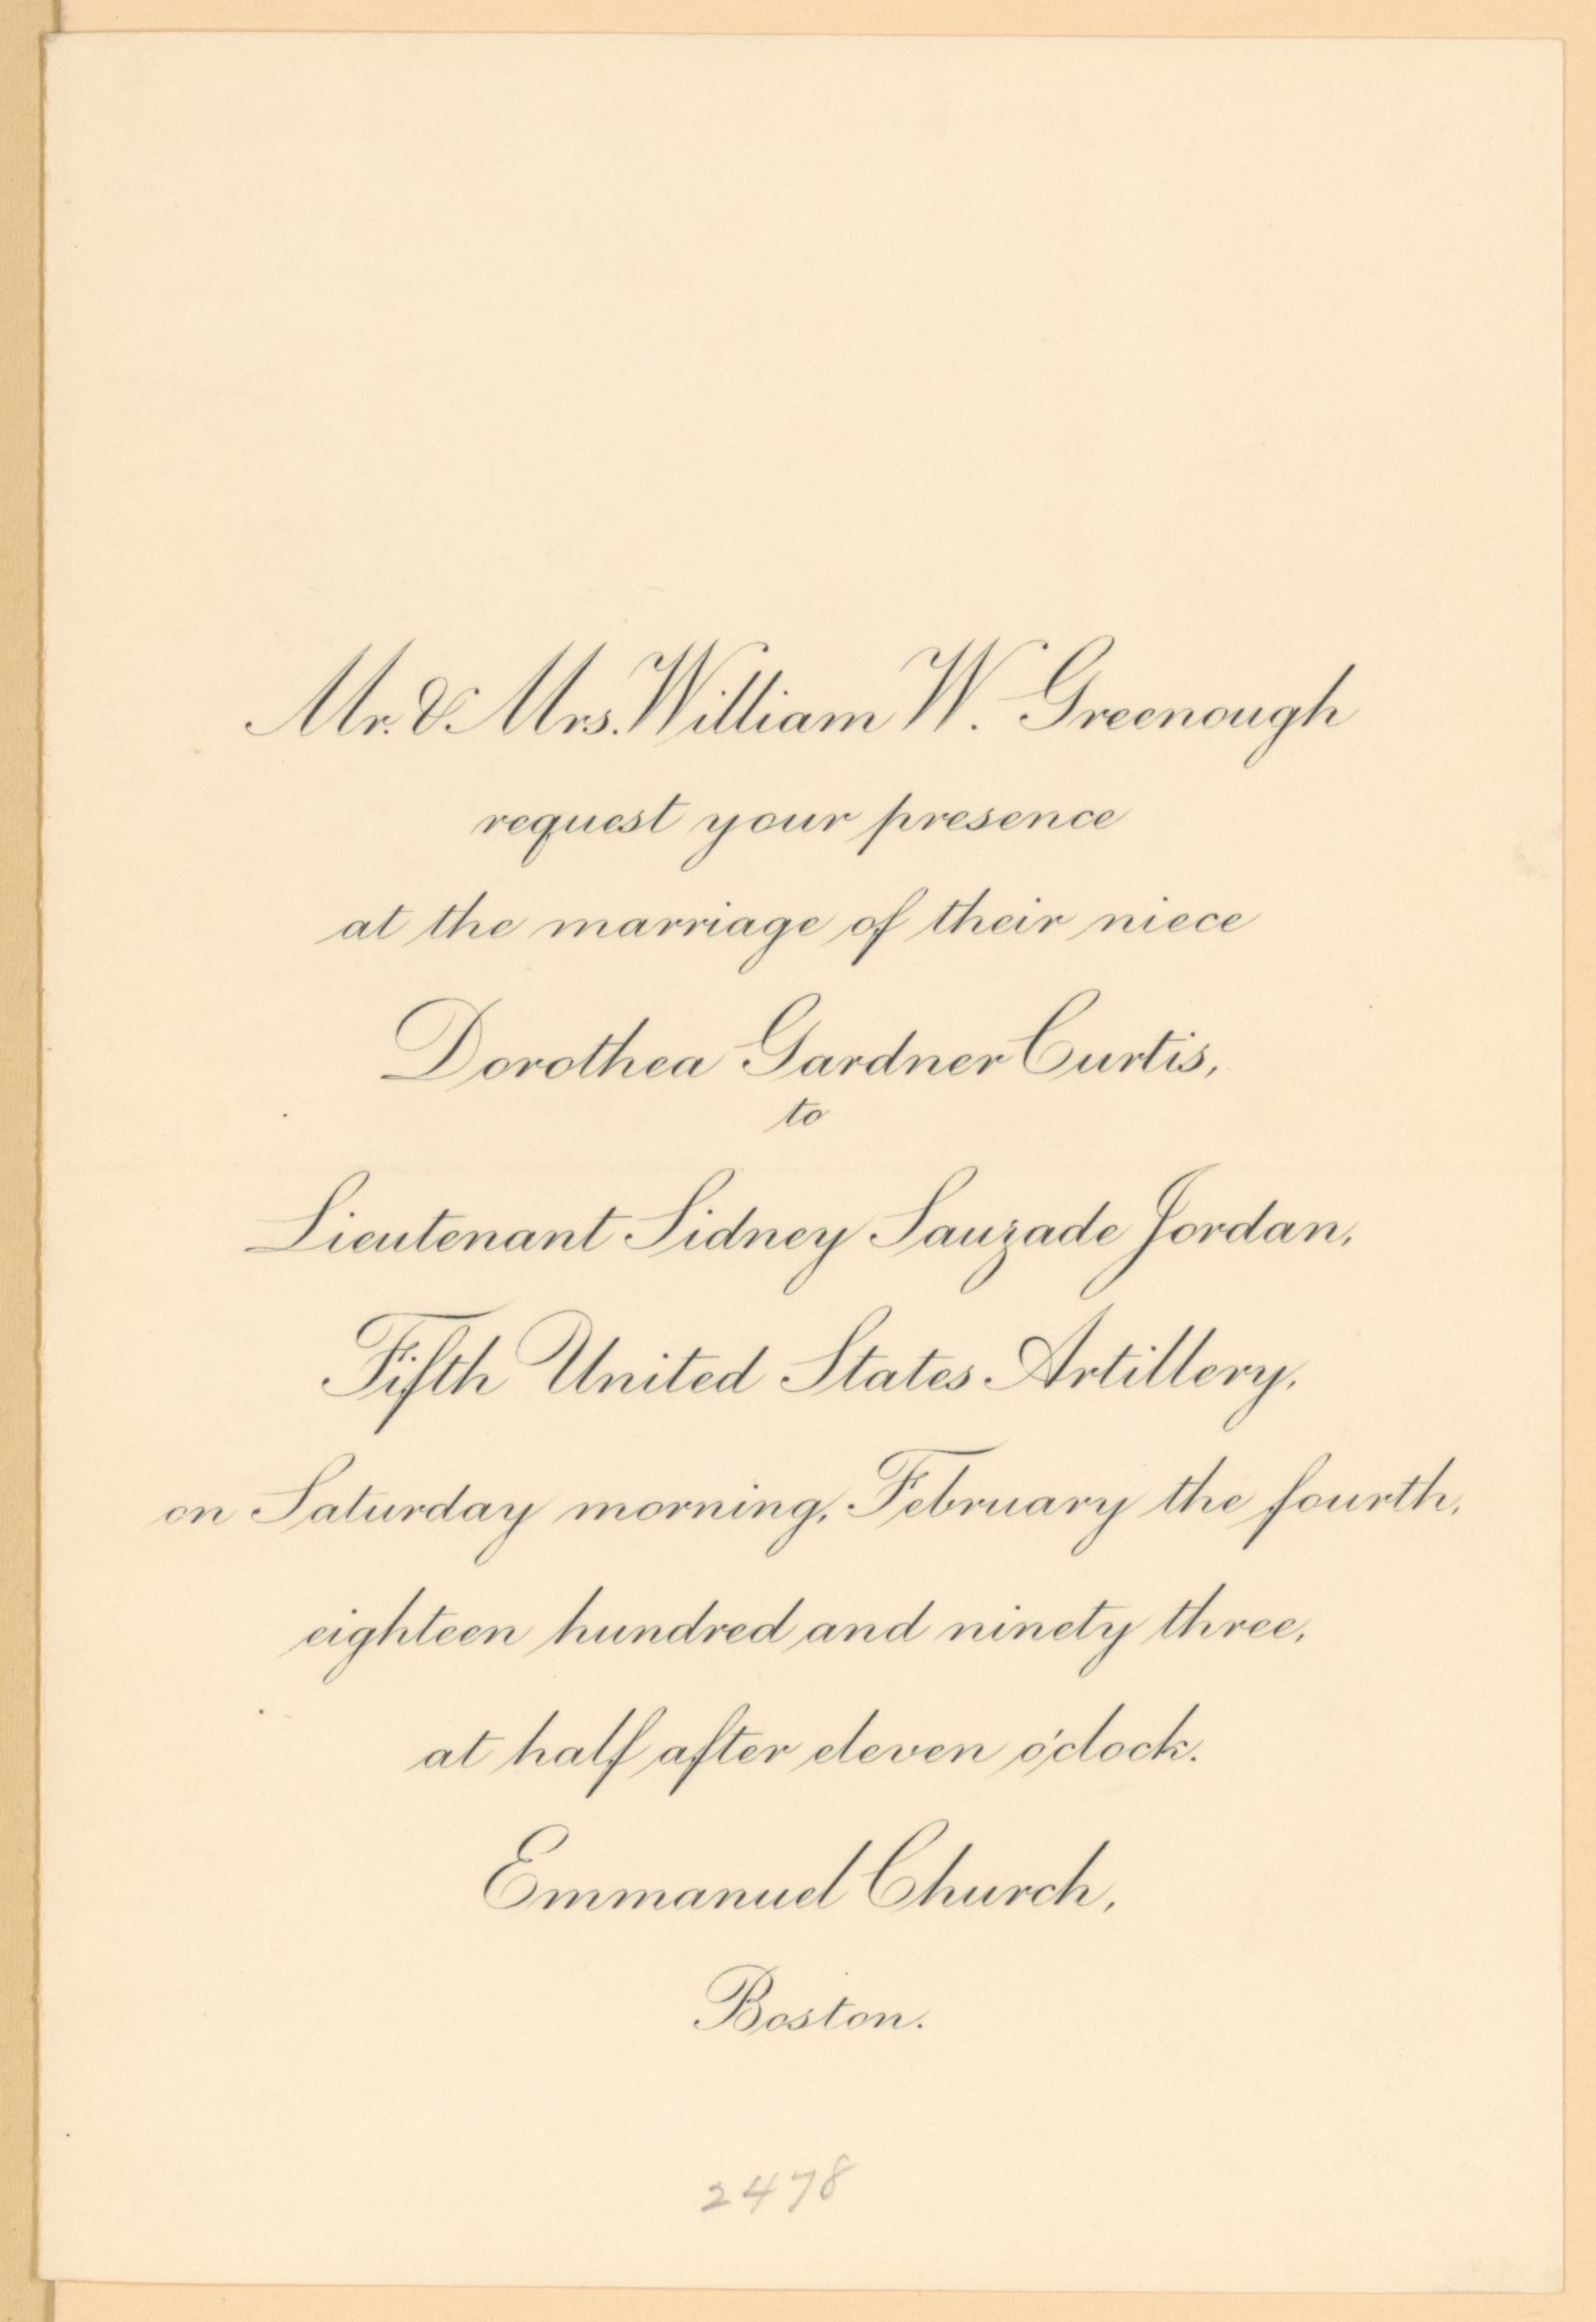 Mr. & Mrs. William W. Greenough
request your presence
at the marriage of their niece
Dorothea Gardner Curtis,
to
Lieutenant Sidney Sauzade Jordan,
Fifth United States Artillery,
on Saturday morning, February the fourth,
eighteen hundred and ninety three,
at half after eleven o'clock.
Emmanuel Church,
Boston.
2478